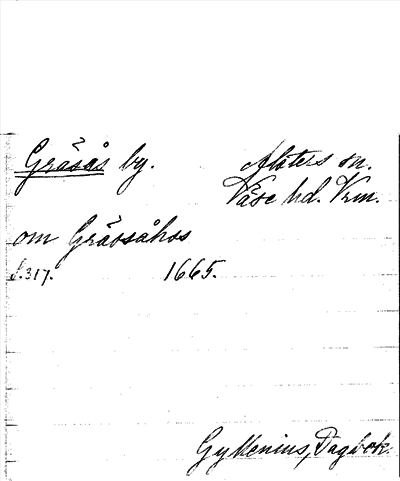 Gräsås by.
Alsters sn.
Väse hd. Vrm.
om Gräsåhss
s. 317. 1665.
Gyllenius, Dagbok.